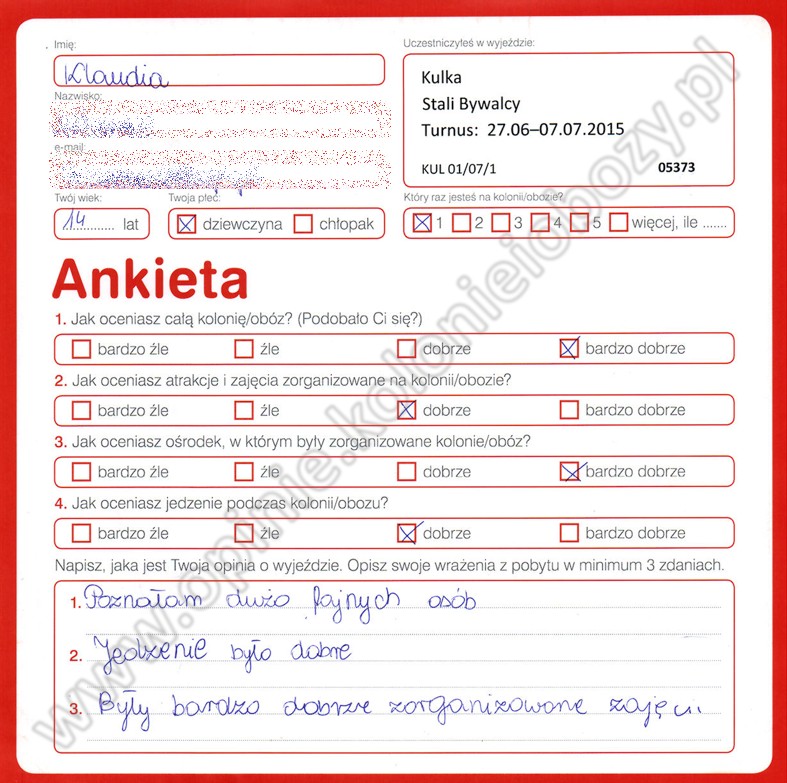 Imię:
Klaudia
Nazwisko:
e-mail:
Twój wiek:
14 lat
Twoja płeć:
dziewczyna chłopak
Uczestniczyłeś w wyjeździe:
Kulka
Stali Bywalcy
Turnus: 27.06–07.07.2015
KUL 01/07/1 05373
Który raz jesteś na kolonii/obozie?
1 2 3 4 5 więcej, ile .......
Ankieta
1. Jak oceniasz całą kolonię/obóz? (Podobało Ci się?)
bardzo źle źle dobrze bardzo dobrze
2. Jak oceniasz atrakcje i zajęcia zorganizowane na kolonii/obozie?
bardzo źle źle dobrze bardzo dobrze
3. Jak oceniasz ośrodek, w którym były zorganizowane kolonie/obóz?
bardzo źle źle dobrze bardzo dobrze
4. Jak oceniasz jedzenie podczas kolonii/obozu?
bardzo źle źle dobrze bardzo dobrze
Napisz, jaka jest Twoja opinia o wyjeździe. Opisz swoje wrażenia z pobytu w minimum 3 zdaniach.
1. Poznałam dużo fajnych osób
2. Jedzenie było dobre
3. Były bardzo dobrze zorganizowane
www.opinie.kolonieiobozy.pl